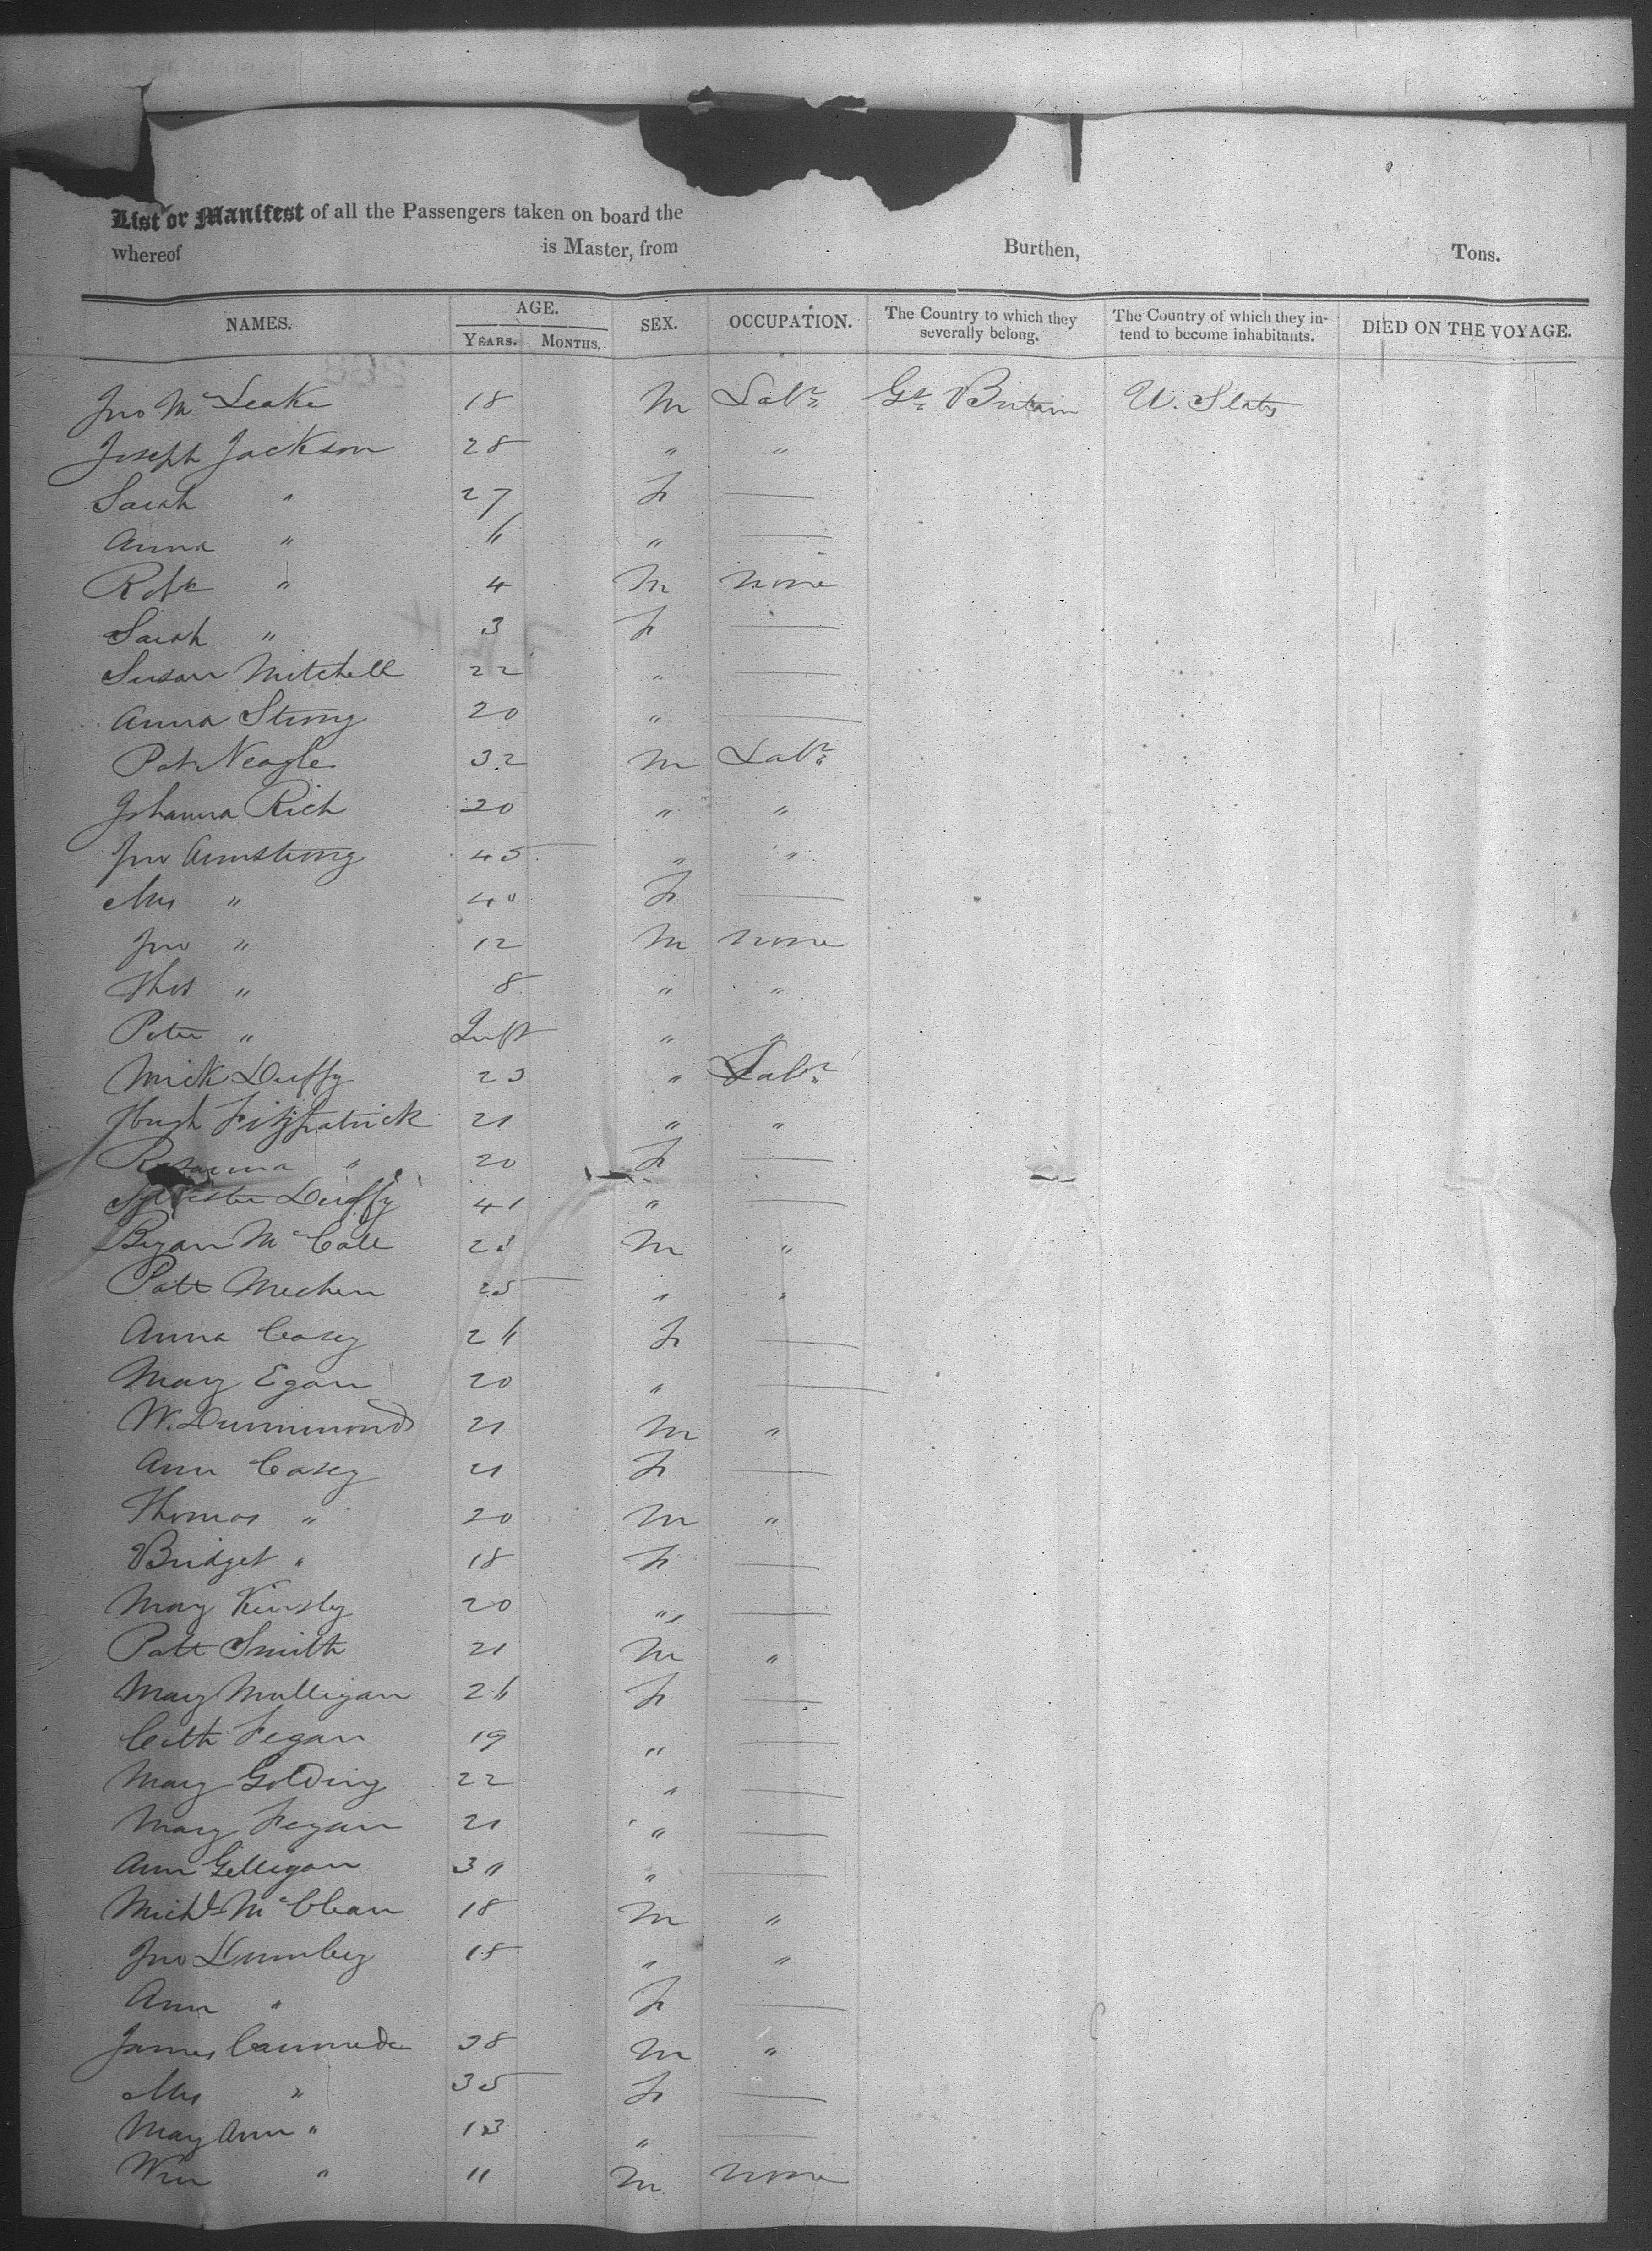 List or Manifest of all the Passengers taken on board the
whereof is Master, from Burthen, Tons.
NAMES. AGE. YEARS. MONTHS. SEX. OCCUPATION. The Country to which they severally belong. The Country of which they intend to become inhabitants. DIED ON THE VOYAGE.
Jno McLeake 18 M Labr Gt Britain U. States
Joseph Jackson 28 " "
Sarah " 27 F —
Anna " 6 " —
Robt " 4 M none
Sarah " 3 F —
Susan Mitchell 22 " —
Anna Strong 20 " —
Pat Neagle 32 M Labr
Johanna Rich 20 " "
Jno Armstrong 45 " "
Mrs " 40 F —
Jno " 12 M none
Thos " 8 " "
Peter " Inft " "
Mick Duffy 23 " Labr
Hugh Fitzpatrick 21 " "
Rosanna " 20 F —
Sylvester Duffy 41 " —
Bryan McCall M "
Patt Mechen 25 " "
Anna Casey 26 F —
Mary Egan 20 " —
W. Drummond 21 M "
Ann Casey 21 F —
Thomas " 20 M "
Bridget " 18 F —
Mary Kinsly 20 " —
Patt Smith 21 M "
Mary Mulligan 26 F —
Cath Fegan 19 " —
Mary Golding 22 " —
Mary Fegan 21 " —
Ann Gilligan " —
Michl McClean 18 M "
Jno 18 " "
Ann " F —
James 38 M "
Mrs " 35 F —
Mary Ann " 13 " —
Wm " 11 M none